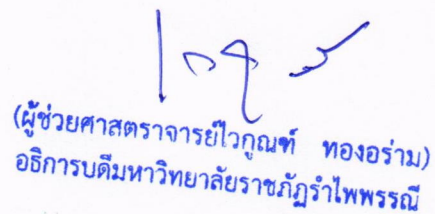 (ผู้ช่วยศาสตราจารย์ไวกูณฑ์ ทองอร่าม)
อธิการบดีมหาวิทยาลัยราชภัฏรำไพพรรณี